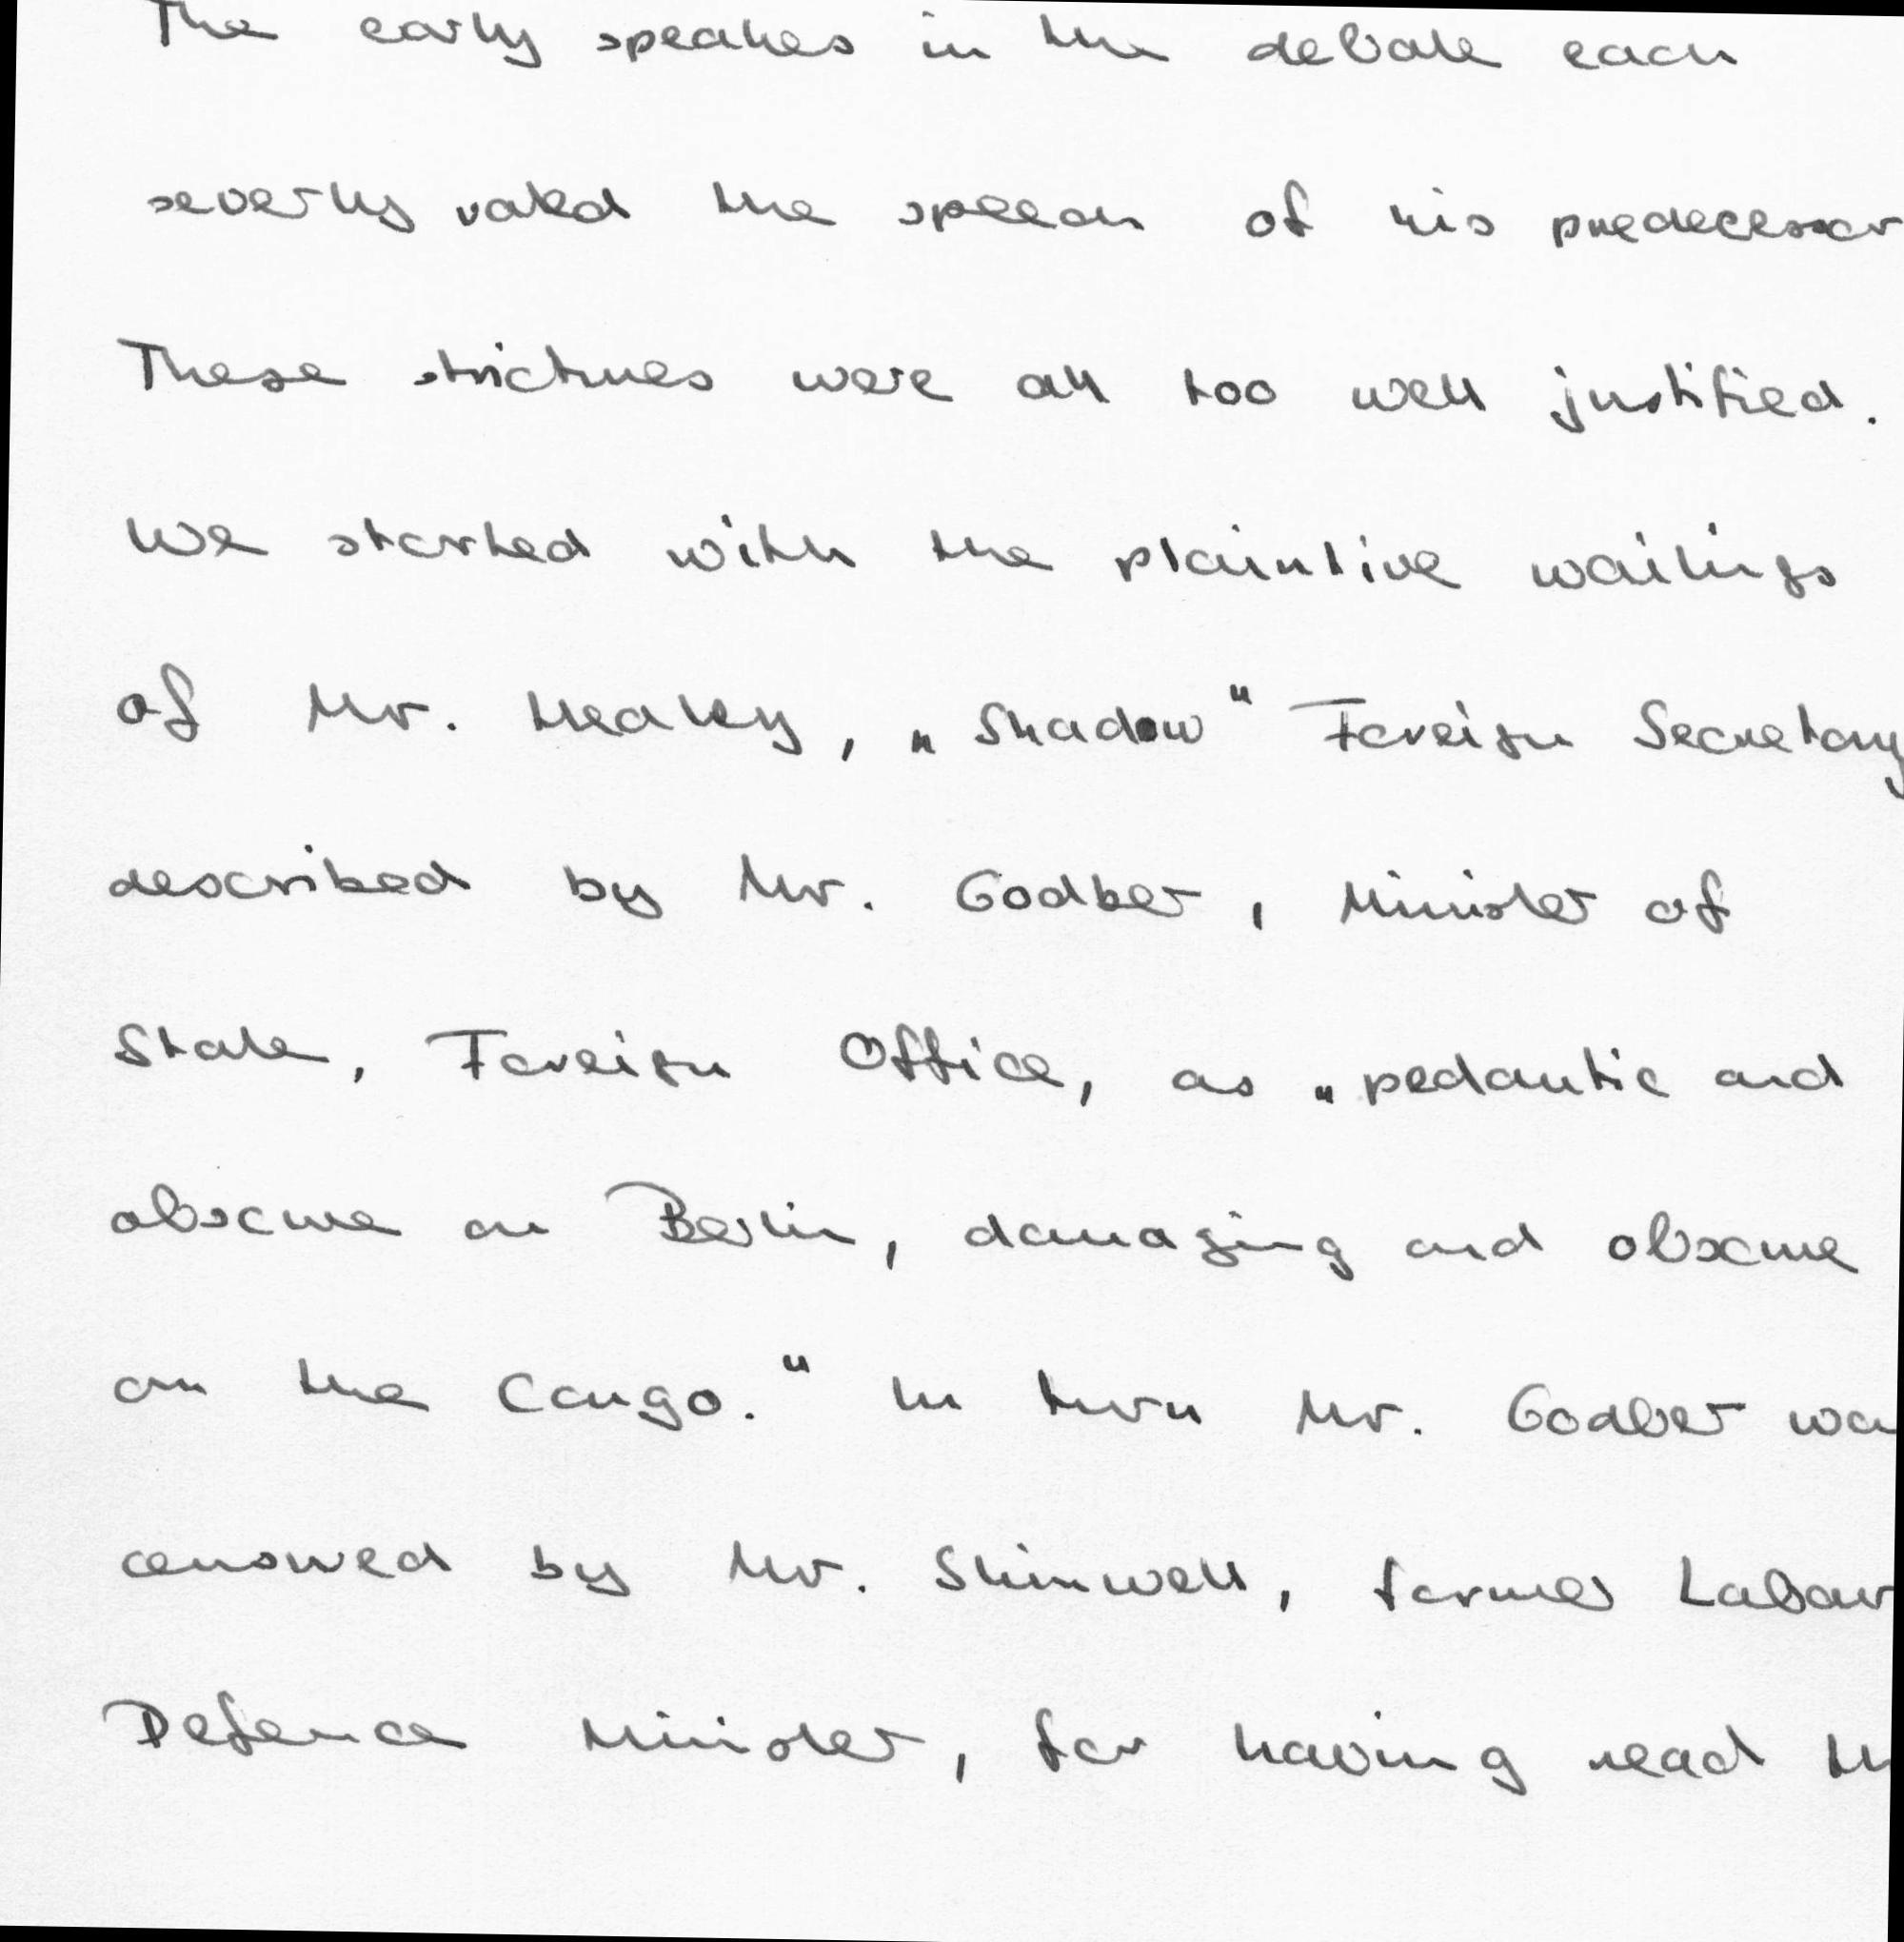 The early speakers in the debate each
severely rated the speech of his predecessor
These strictures were all too well justified.
We started with the plaintive wailings
of Mr. Healey, „Shadow" Foreign Secretary
described by Mr. Godber, Minister of
State, Foreign Office, as „pedantic and
obscure on Berlin, damaging and obscure
on the Congo." In turn Mr. Godber wa
censured by Mr. Shinwell, former Labour
Defence Minister, for having read th